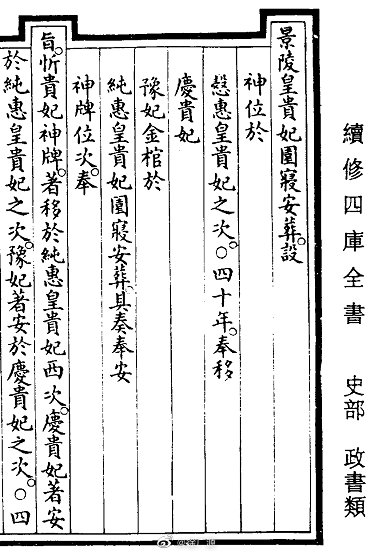 續修四庫全書 史部 政書類
景陵皇貴妃園寢安葬。設
神位於
愨惠皇貴妃之次。○四十年。奉移
慶貴妃
豫妃金棺於
純惠皇貴妃園寢安葬。具奏奉安
神牌位次。奉
旨。忻貴妃神牌。著移於純惠皇貴妃西次。慶貴妃著安
於純惠皇貴妃之次。豫妃著安於慶貴妃之次。○四